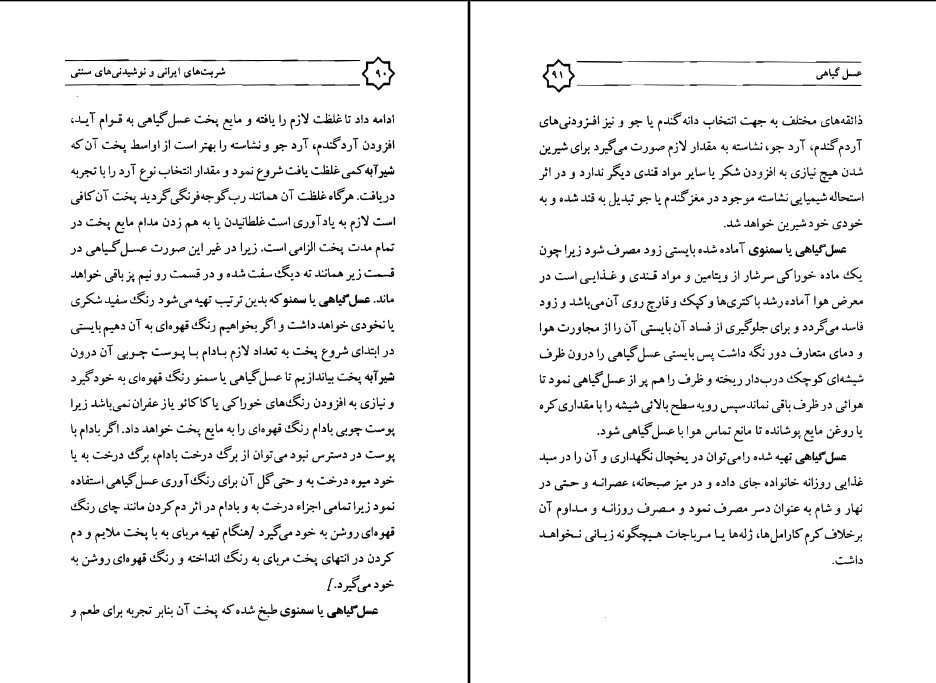 ۹۰
شربت‌های ایرانی و نوشیدنی‌های سنتی
ادامه داد تا غلظت لازم را یافته و مایع پخت عسل‌گیاهی به قوام آید،
افزودن آردگندم، آرد جو و نشاسته را بهتر است از اواسط پخت آن که
شیرآبه کمی غلظت یافت شروع نمود و مقدار انتخاب نوع آرد را با تجربه
دریافت. هرگاه غلظت آن همانند رب گوجه‌فرنگی گردید پخت آن کافی
است لازم به یادآوری است غلطانیدن یا به هم زدن مدام مایع پخت در
تمام مدت پخت الزامی است. زیرا در غیر این صورت عسل‌گیاهی در
قسمت زیر همانند ته دیگ سفت شده و در قسمت رو نیم پز باقی خواهد
ماند. عسل‌گیاهی یا سمنو که بدین ترتیب تهیه می‌شود رنگ سفید شکری
یا نخودی خواهد داشت و اگر بخواهیم رنگ قهوه‌ای به آن دهیم بایستی
در ابتدای شروع پخت به تعداد لازم بادام با پوست چوبی آن درون
شیرآبه پخت بیاندازیم تا عسل‌گیاهی یا سمنو رنگ قهوه‌ای به خود گیرد
و نیازی به افزودن رنگ‌های خوراکی یا کاکائو یا زعفران نمی‌باشد زیرا
پوست چوبی بادام رنگ قهوه‌ای را به مایع پخت خواهد داد. اگر بادام با
پوست در دسترس نبود می‌توان از برگ درخت بادام، برگ درخت به یا
خود میوه درخت به و حتی گل آن برای رنگ آوری عسل‌گیاهی استفاده
نمود زیرا تمامی اجزاء درخت به و بادام در اثر دم کردن مانند چای رنگ
قهوه‌ای روشن به خود می‌گیرد [هنگام تهیه مربای به با پخت ملایم و دم
کردن در انتهای پخت مربای به رنگ انداخته و رنگ قهوه‌ای روشن به
خود می‌گیرد.]
عسل‌گیاهی یا سمنوی طبخ شده که پخت آن بنابر تجربه برای طعم و
۹۱
عسل گیاهی
ذائقه‌های مختلف به جهت انتخاب دانه گندم یا جو و نیز افزودنی‌های
آردم گندم، آرد جو، نشاسته به مقدار لازم صورت می‌گیرد برای شیرین
شدن هیچ نیازی به افزودن شکر یا سایر مواد قندی دیگر ندارد و در اثر
استحاله شیمیایی نشاسته موجود در مغز گندم یا جو تبدیل به قند شده و به
خودی خود شیرین خواهد شد.
عسل‌گیاهی یا سمنوی آماده شده بایستی زود مصرف شود زیرا چون
یک ماده خوراکی سرشار از ویتامین و مواد قندی و غذایی است در
معرض هوا آماده رشد باکتری‌ها و کپک و قارچ روی آن می‌باشد و زود
فاسد می‌گردد و برای جلوگیری از فساد آن بایستی آن را از مجاورت هوا
و دمای متعارف دور نگه داشت پس بایستی عسل‌گیاهی را درون ظرف
شیشه‌ای کوچک درب‌دار ریخته و ظرف را هم پر از عسل‌گیاهی نمود تا
هوائی در ظرف باقی نماند سپس رویه سطح بالائی شیشه را با مقداری کره
یا روغن مایع پوشانده تا مانع تماس هوا با عسل‌گیاهی شود.
عسل‌گیاهی تهیه شده را می‌توان در یخچال نگهداری و آن را در سبد
غذایی روزانه خانواده جای داده و در میز صبحانه، عصرانه و حتی در
نهار و شام به عنوان دسر مصرف نمود و مصرف روزانه و مداوم آن
برخلاف کرم کارامل‌ها، ژله‌ها یا مرباجات هیچگونه زیانی نخواهد
داشت.